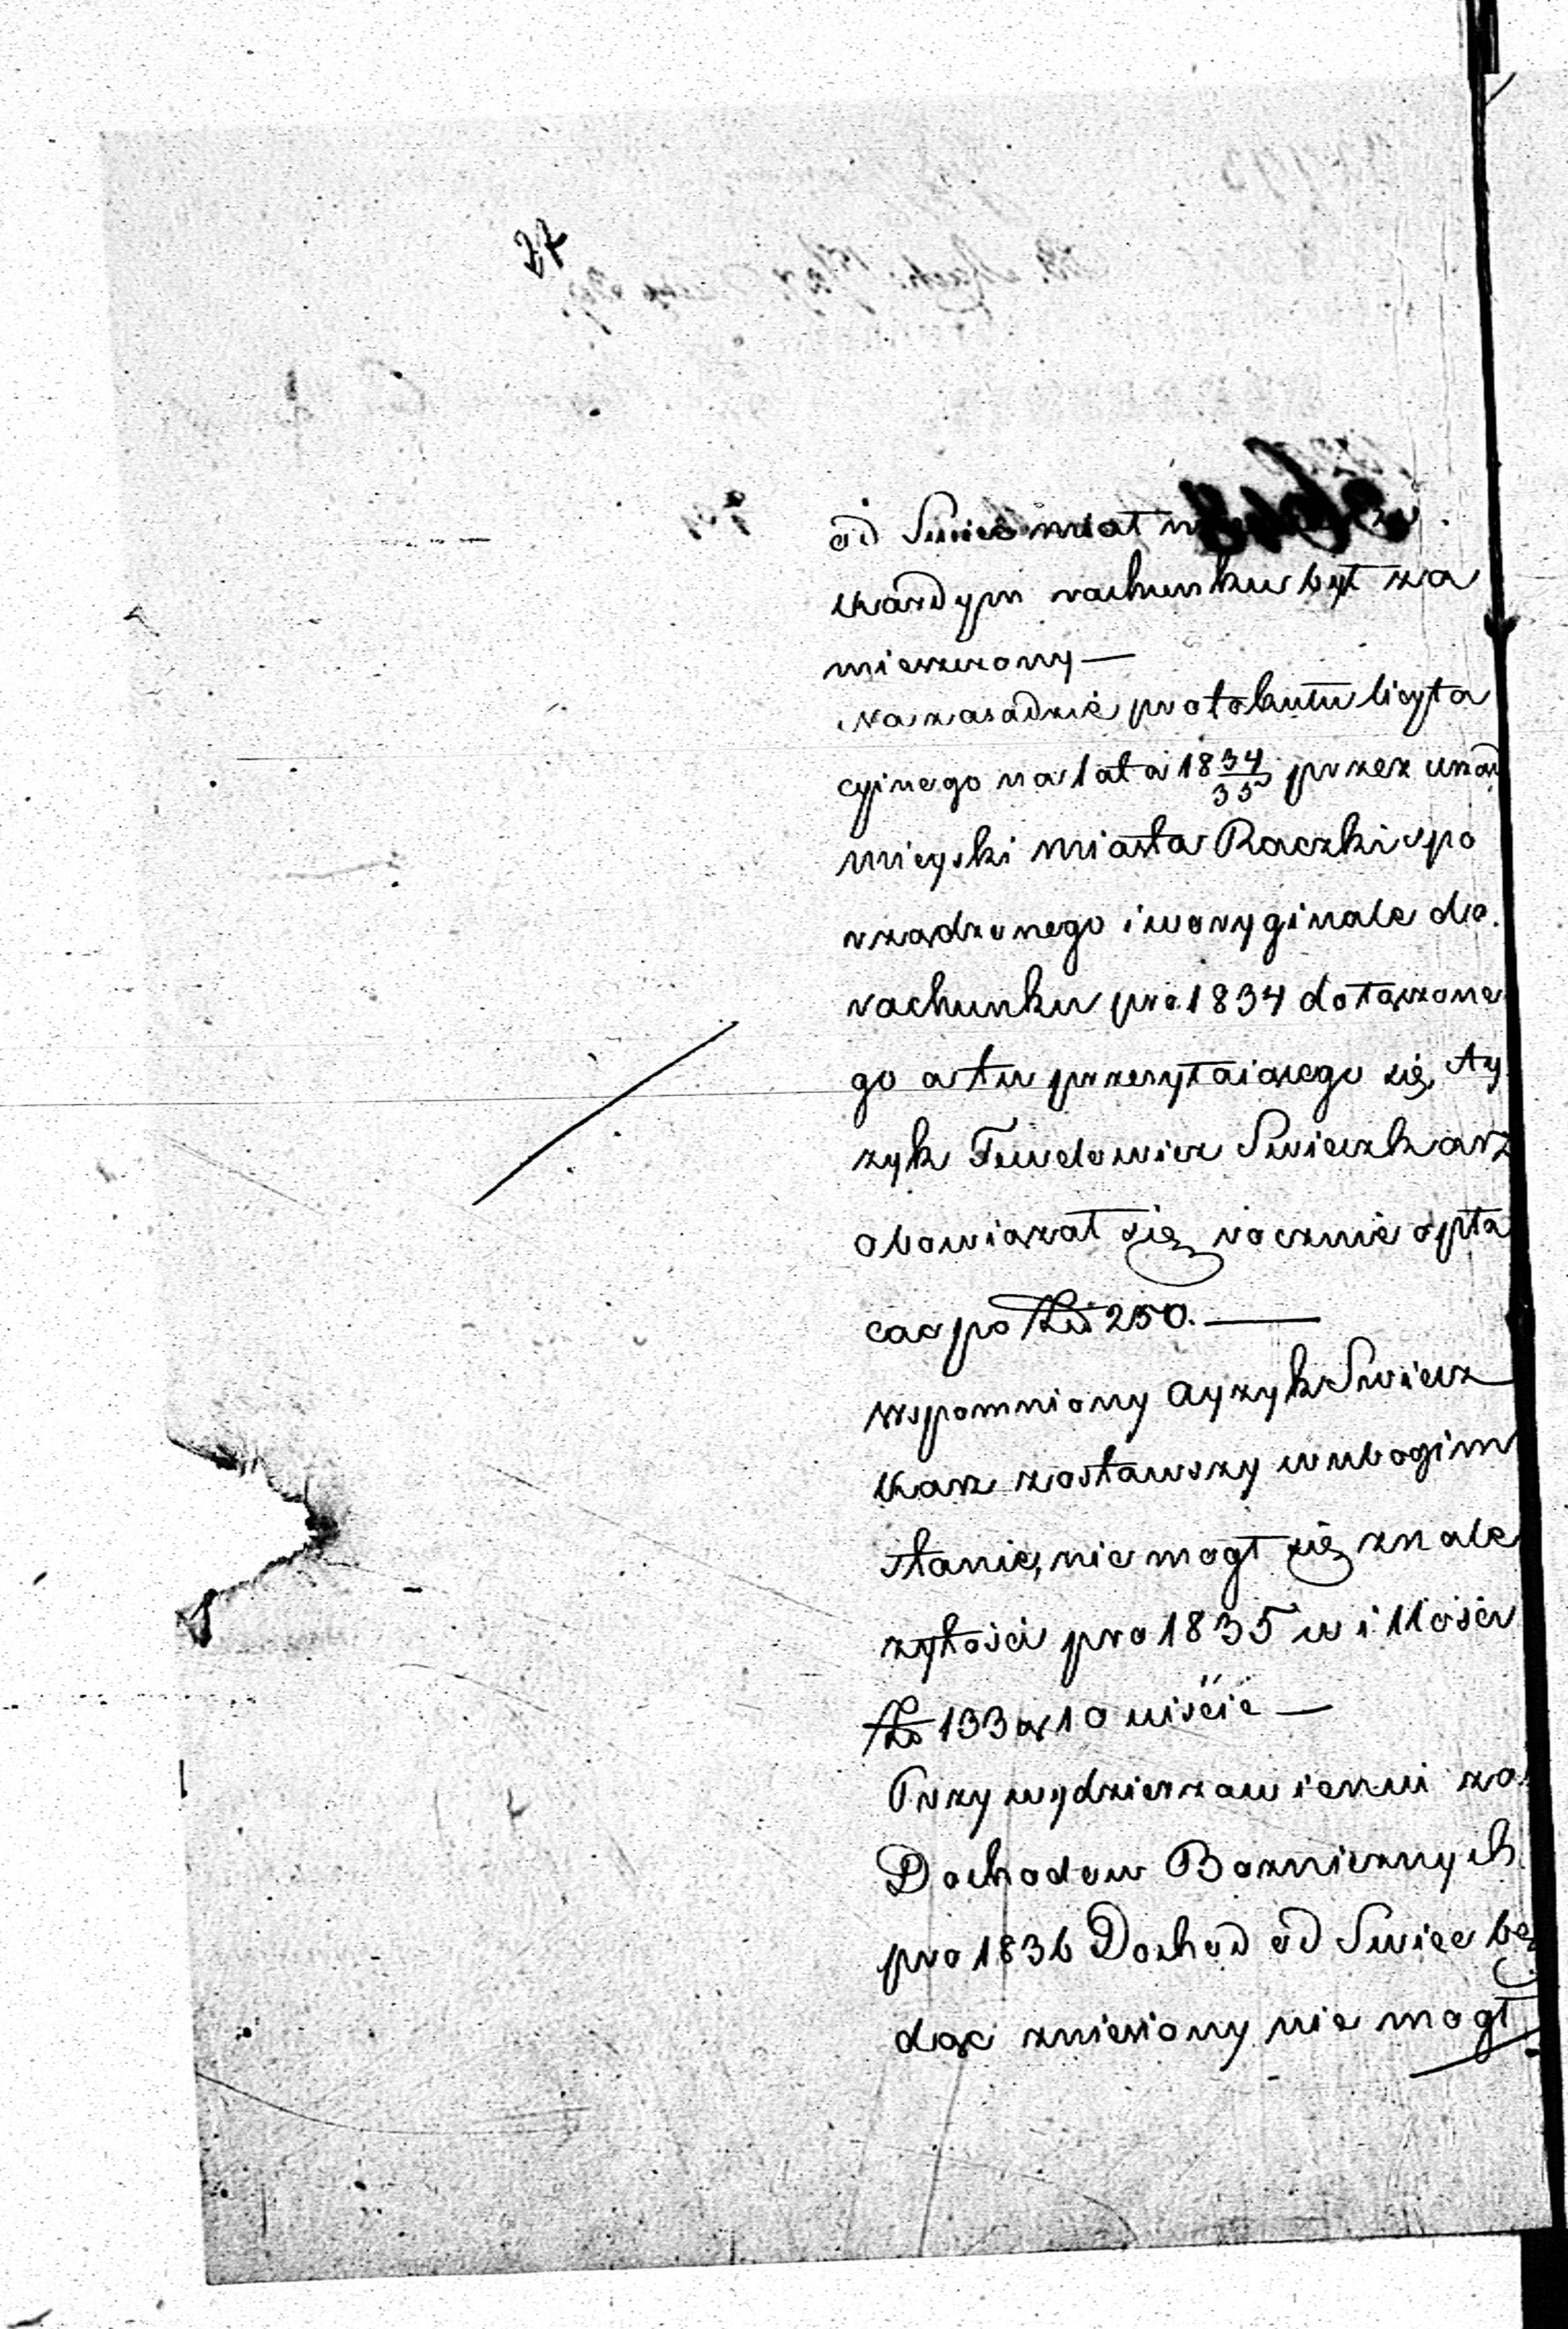 27
od Swiec miał
każdym rachunku był za
mieszczony —
Na zasadzie protokułu licyta
cyinego na lata 1834/35 przez urząd
mieyski miasta Raczki spo
rządzonego i w oryginale do
rachunku pro 1834 dołączone
go a tu przesyłaiącego się, Ay
zyk Swieczkarz
obowiązał się rocznie opła
cac po Złł 250. —
Wspomniony Ayzyk Swiecz
karz zostawszy w ubogim
stanie, nie mogł się z nale
zytości pro 1835 w illości
Zł 133 gr 10 uiścić —
Przy wydzierzawieniu zaś
Dochodow Boznicznych
pro 1836 Dochod od Swiec bę
dąc zniesiony nie mogł